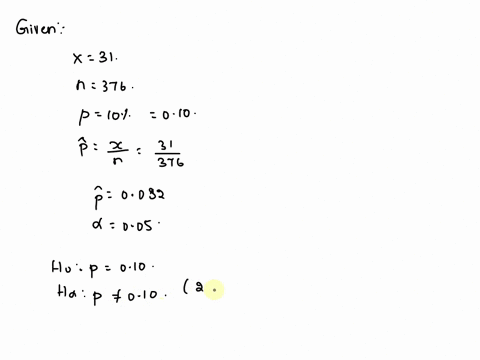 Given:-
x = 31.
n = 376.
p = 10% = 0.10.
p̂ = x/n = 31/376
p̂ = 0.082
α = 0.05.
H₀: p = 0.10.
Hα: p ≠ 0.10. (2